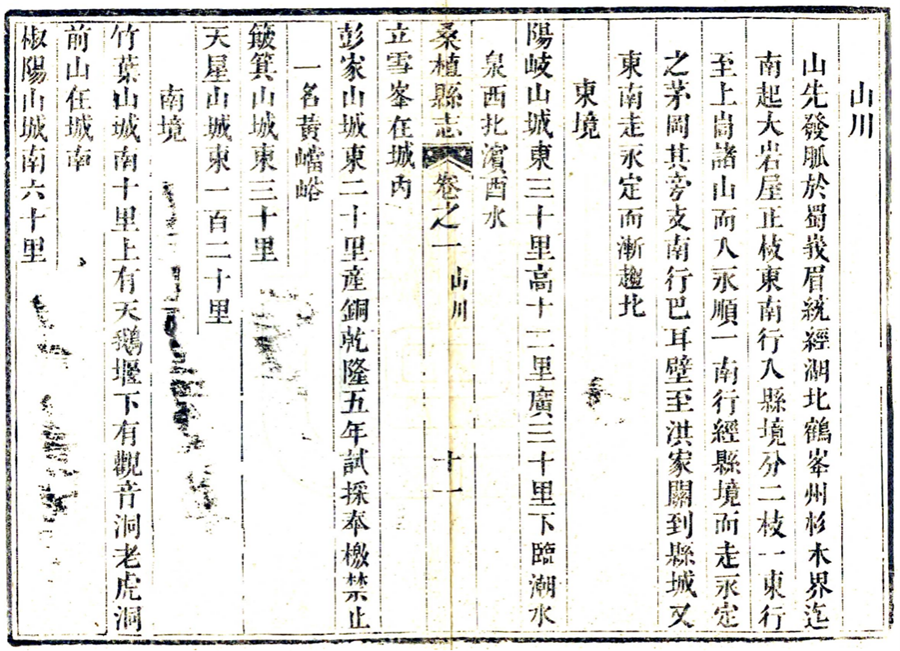 山川
山先發脈於蜀峩眉統經湖北鶴峯州杉木界迄
南起大岩屋正枝東南行入縣境分二枝一東行
至上峝諸山而入永順一南行經縣境而走永定
之茅岡其旁支南行巴耳壁至洪家關到縣城又
東南走永定而漸趨北
東境
陽岐山城東三十里高十二里廣三十里下臨潮水
泉西北濱酉水
桑植縣志 卷之一 山川 十一
立雪峯在城內
彭家山城東二十里產銅乾隆五年試採奉檄禁止
一名黃嶍峪
簸箕山城東三十里
天星山城東一百二十里
南境
竹葉山城南十里上有天鵝堰下有觀音洞老虎洞
前山在城南
椒陽山城南六十里